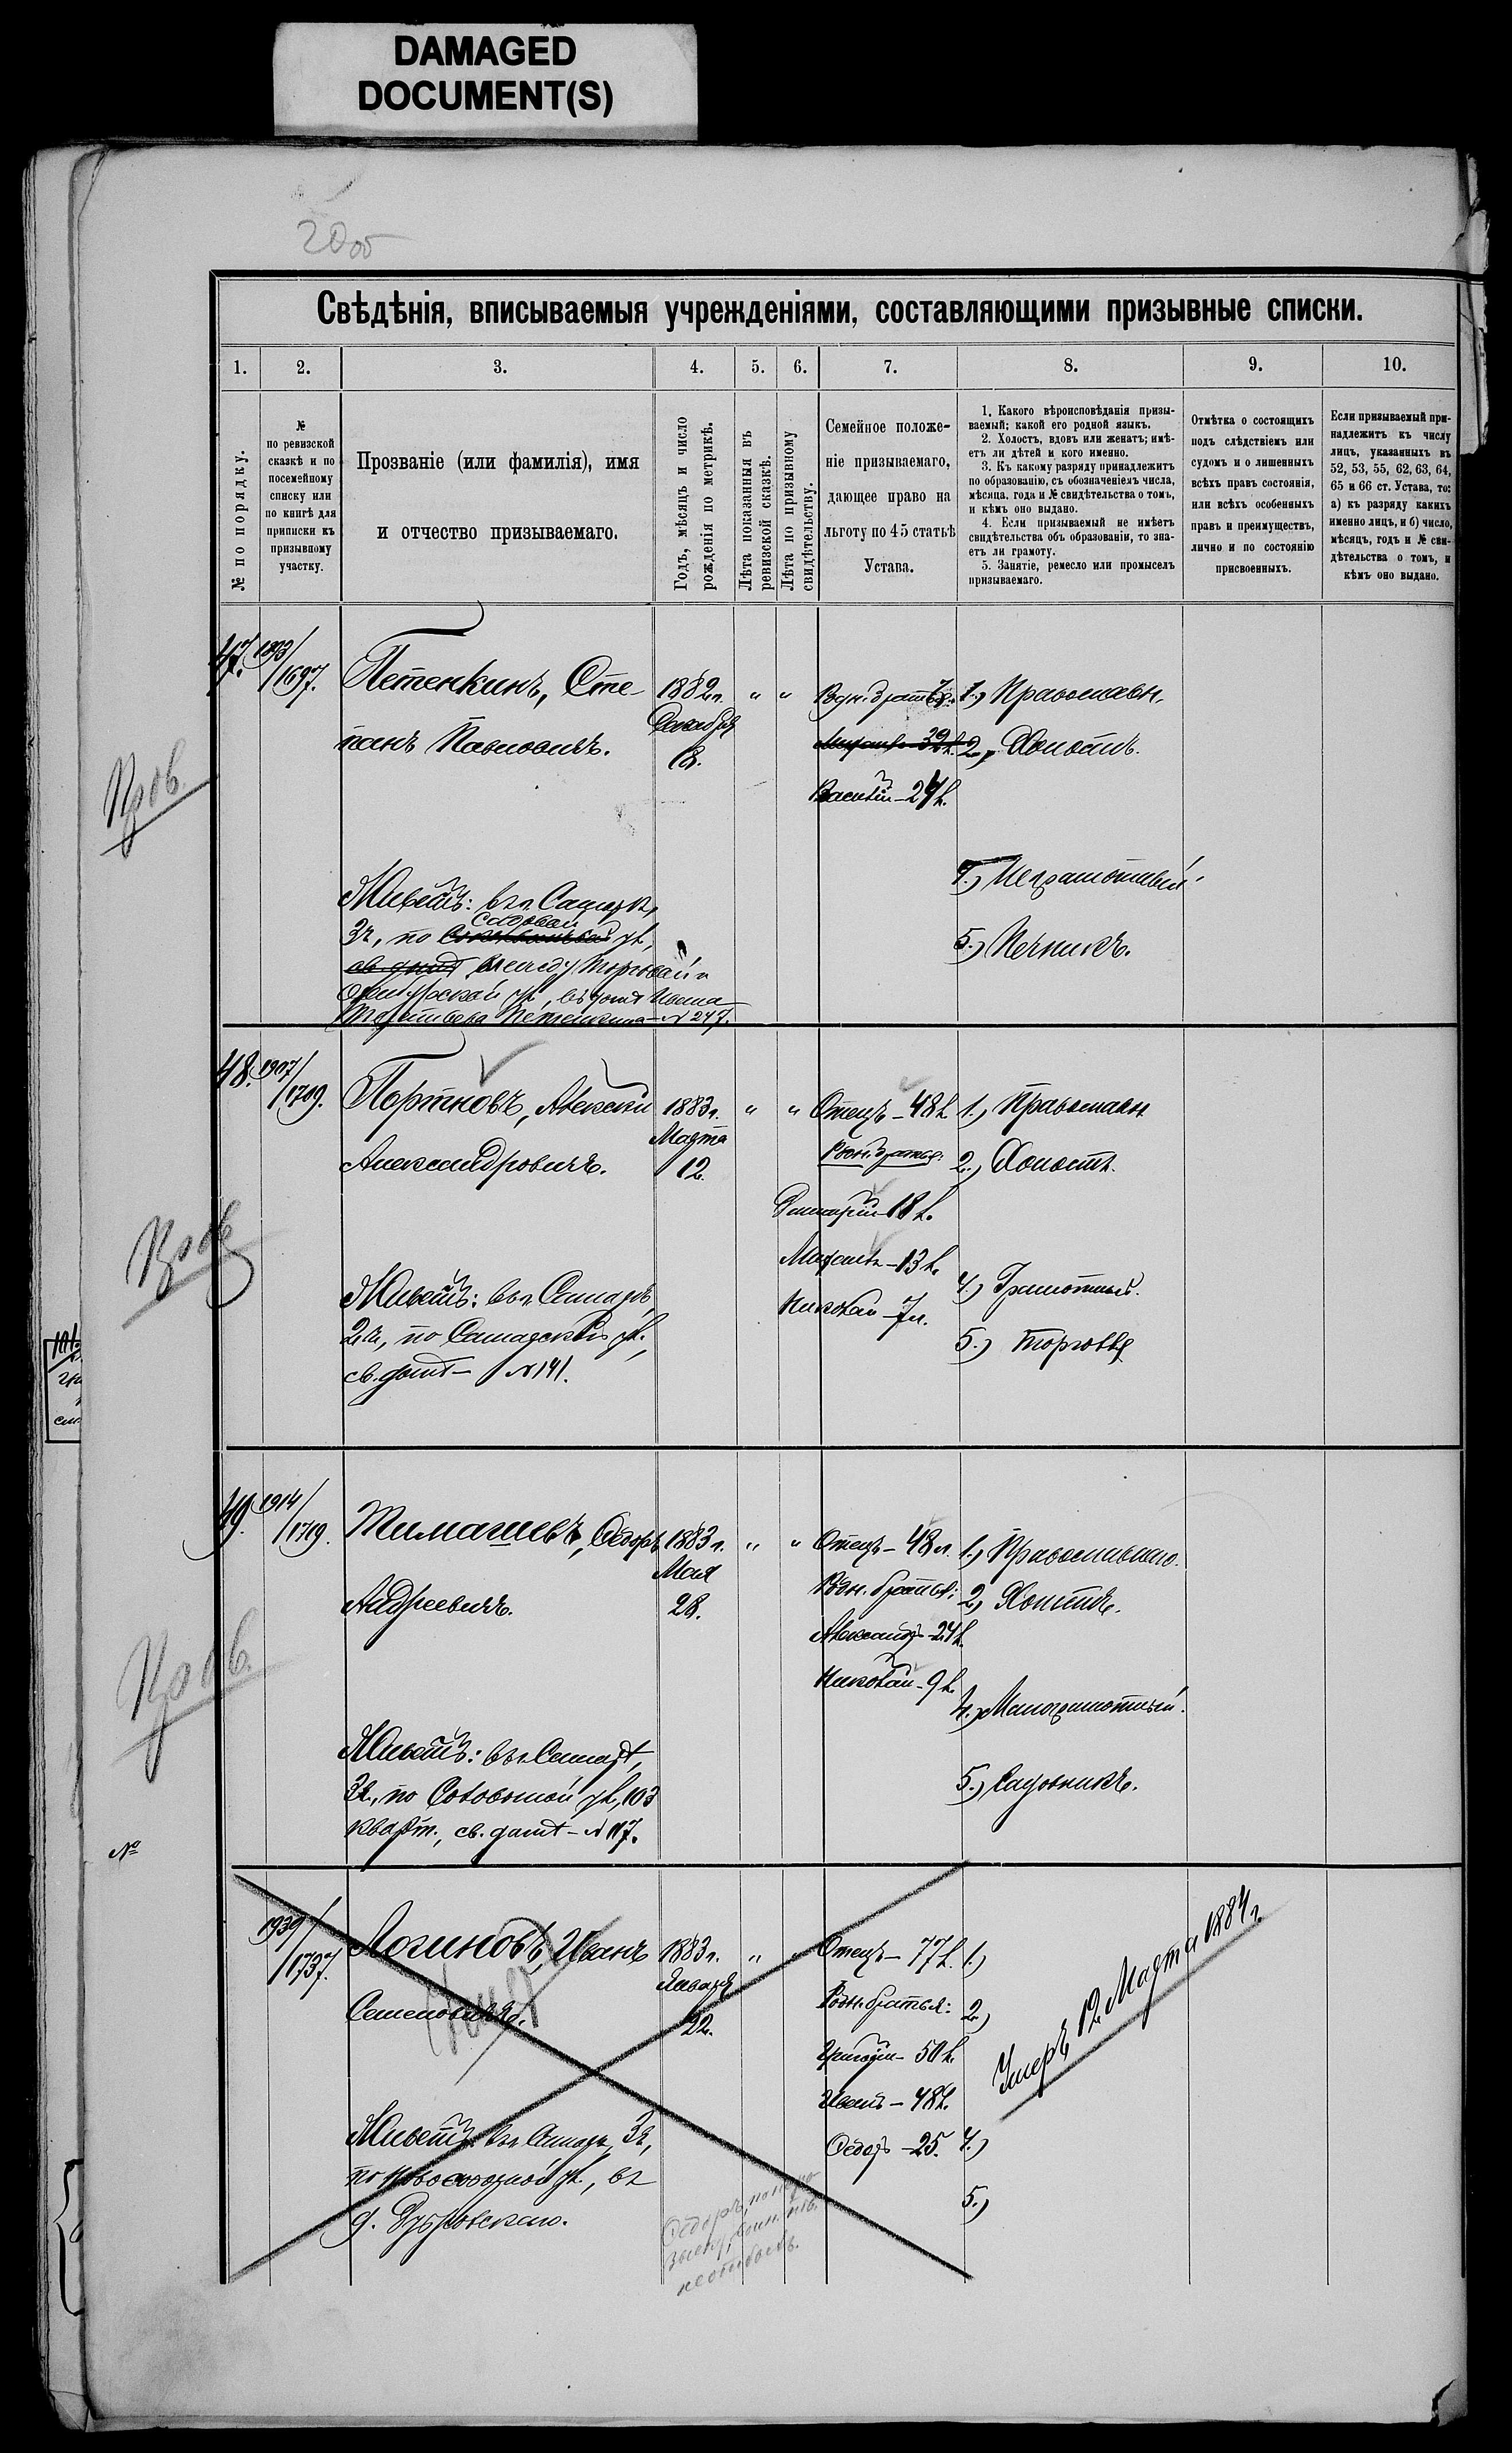 DAMAGED
DOCUMENT(S)
20 об
Свѣдѣнія, вписываемыя учрежденіями, составляющими призывные списки.
1. 2. 3. 4. 5. 6. 7. 8. 9. 10.
№ по порядку.
№
по ревизской
сказкѣ и по
посемейному
списку или
по книгѣ для
приписки къ
призывному
участку.
Прозваніе (или фамилія), имя
и отчество призываемаго.
Годъ, мѣсяцъ и число
рожденія по метрикѣ.
Лѣта показанныя въ
ревизской сказкѣ.
Лѣта по призывному
свидѣтельству.
Семейное положе-
ніе призываемаго,
дающее право на
льготу по 45 статьѣ
Устава.
1. Какого вѣроисповѣданія призы-
ваемый; какой его родной языкъ.
2. Холостъ, вдовъ или женатъ; имѣ-
етъ ли дѣтей и кого именно.
3. Къ какому разряду принадлежитъ
по образованію, съ обозначеніемъ числа,
мѣсяца, года и № свидѣтельства о томъ,
и кѣмъ оно выдано.
4. Если призываемый не имѣетъ
свидѣтельства объ образованіи, то зна-
етъ ли грамоту.
5. Занятіе, ремесло или промыселъ
призываемаго.
Отмѣтка о состоящихъ
подъ слѣдствіемъ или
судомъ и о лишенныхъ
всѣхъ правъ состоянія,
или всѣхъ особенныхъ
правъ и преимуществъ,
лично и по состоянію
присвоенныхъ.
Если призываемый при-
надлежитъ къ числу
лицъ, указанныхъ въ
52, 53, 55, 62, 63, 64,
65 и 66 ст. Устава, то:
а) къ разряду какихъ
именно лицъ, и б) число,
мѣсяцъ, годъ и № сви-
дѣтельства о томъ, и
кѣмъ оно выдано.
47. 1893/1697.
Петенкинъ, Сте-
панъ Павловичъ.
1882 г.
Декабря
18.
" "
Родн. братья:
Михаилъ 32 л.
Василій – 24 л.
1.) Православн.
2., Холостъ.
4.) Неграмотный.
5.) Печникъ.
Пров.
Живетъ: въ г. Самарѣ,
3 ч., по Садовой ул.,
св. домѣ между Торговой и
ул., въ домѣ Ивана
Петенкина – № 247.
48. 1907/1709.
Портновъ, Алексѣй
Александровичъ.
1883 г.
Марта
12.
" "
Отецъ – 48 л.
Родн. братья:
Дмитрій – 18 л.
Михаилъ – 13 л.
Николай – 7 л.
1.) Православн
2.) Холостъ.
4.) Грамотный.
5.) Торговля
Пров
Живетъ: въ г. Самарѣ,
2 ч., по Самарской ул.,
св. домѣ – № 141.
49. 1914/1719.
Тимашевъ, Ѳедоръ
Андреевичъ.
1883 г.
Мая
28.
" "
Отецъ – 48 л.
Родн. братья:
Александръ – 24 л.
Николай – 9 л.
1.) Православнаго.
2.) Холостъ.
4.) Малограмотный.
5.) Садовникъ.
Пров.
Живетъ: въ г. Самарѣ,
3 ч., по Соловьиной ул., 103
кварт., св. домѣ – № 117.
№
1939/1737.
Логиновъ, Иванъ
Семеновичъ.
1883 г.
Января
22.
" "
Отецъ – 77 л.
Родн. братья:
Григорій – 50 л.
Иванъ – 48 л.
Ѳедоръ – 25.
1.)
2.)
4.)
5.)
Умеръ 12 Марта 1884 г.
Живетъ: въ г. Самарѣ, 3 ч.,
по Новособорной ул., въ
д. Дубровскаго.
Ѳедоръ,